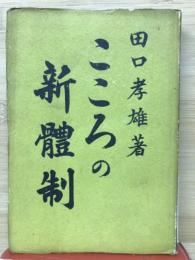 田口孝雄著
こころの
新體制